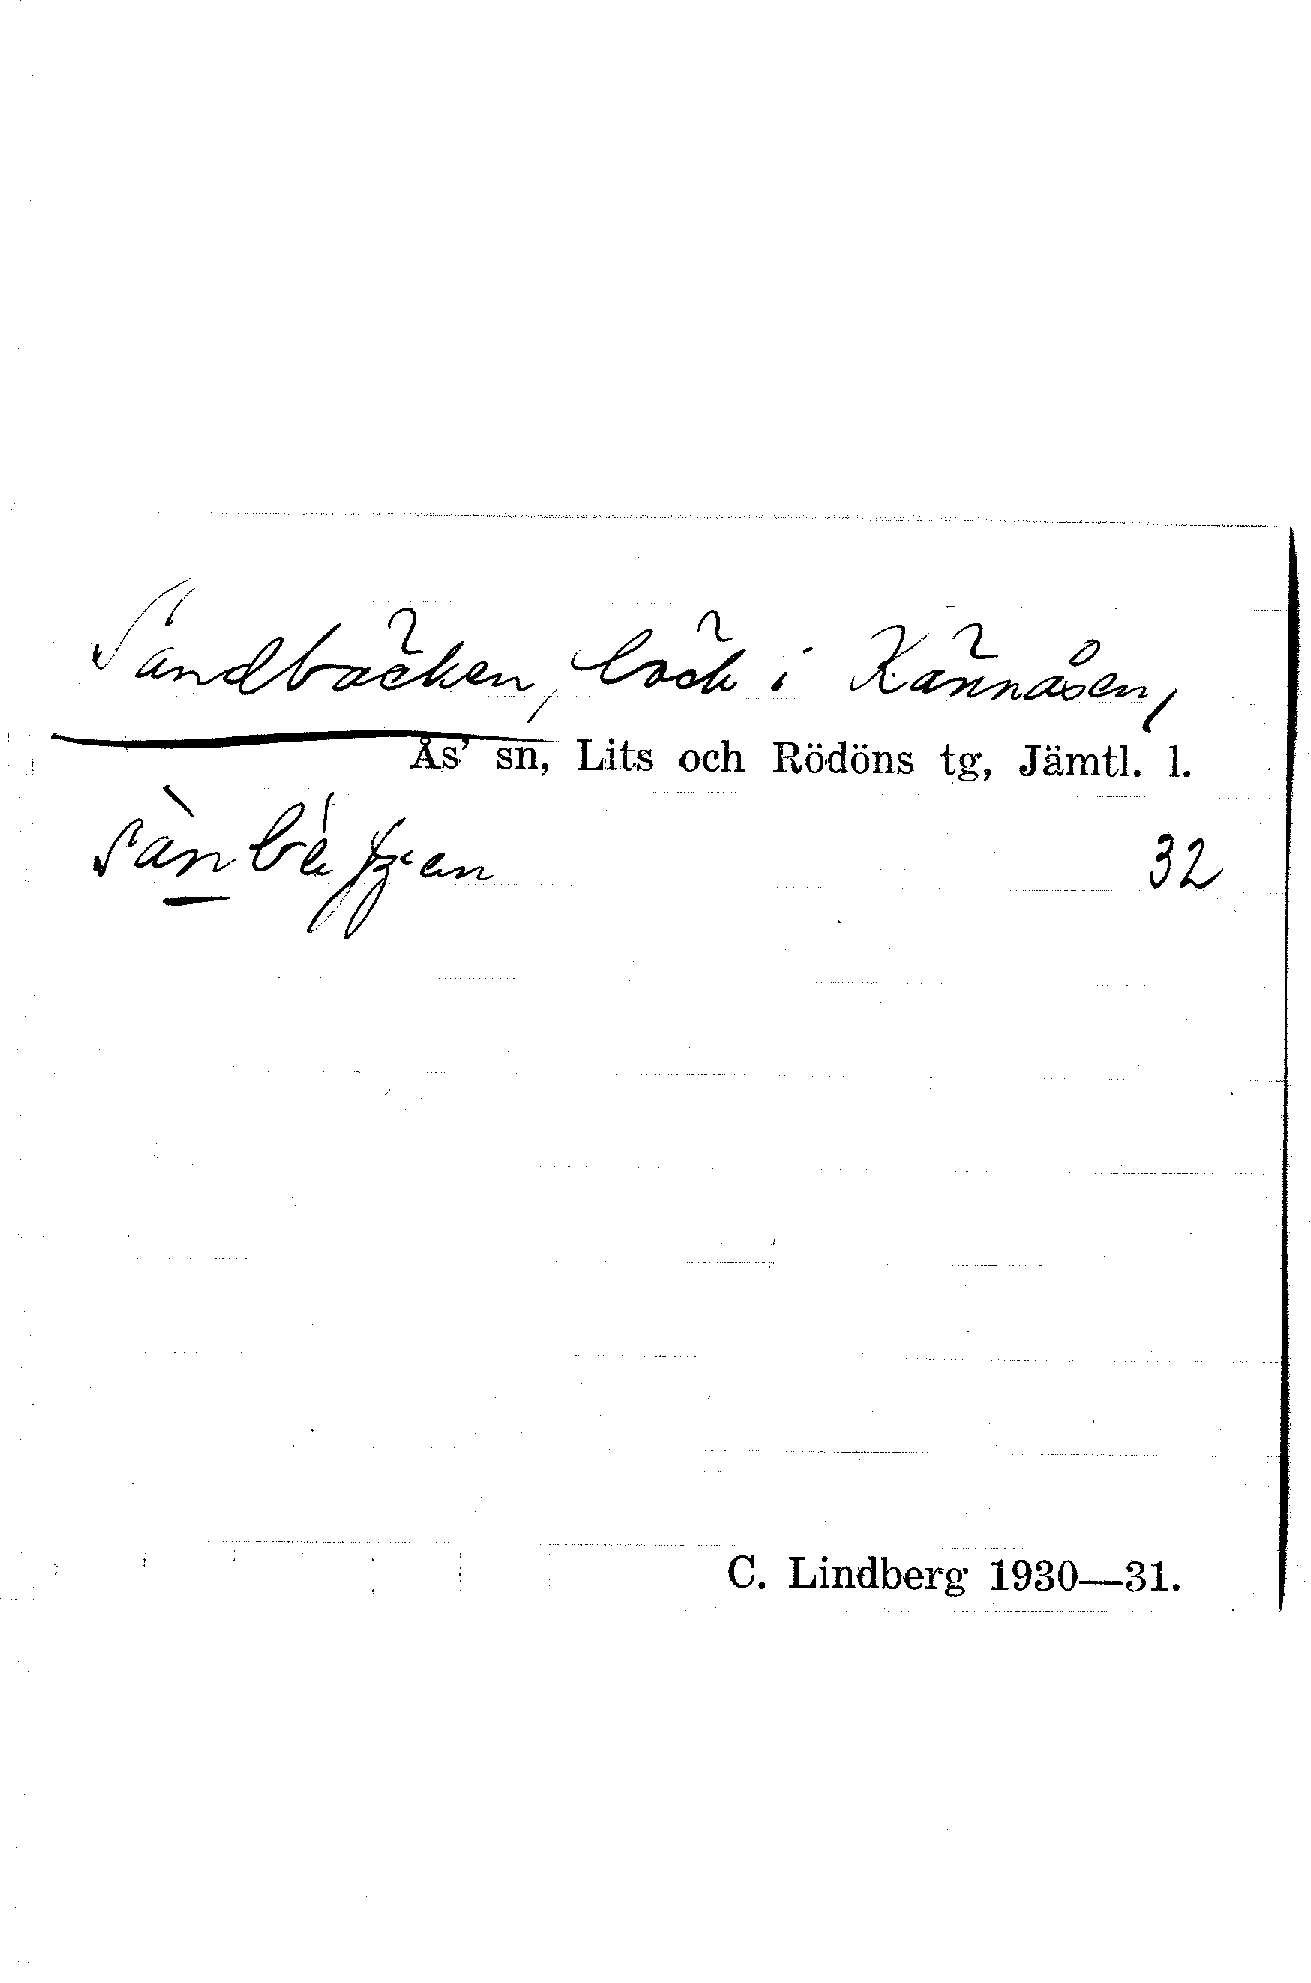 Sandbäcken, bäck i Kännåsen,
Ås' sn, Lits och Rödöns tg, Jämtl. l.
32
C. Lindberg 1930—31.